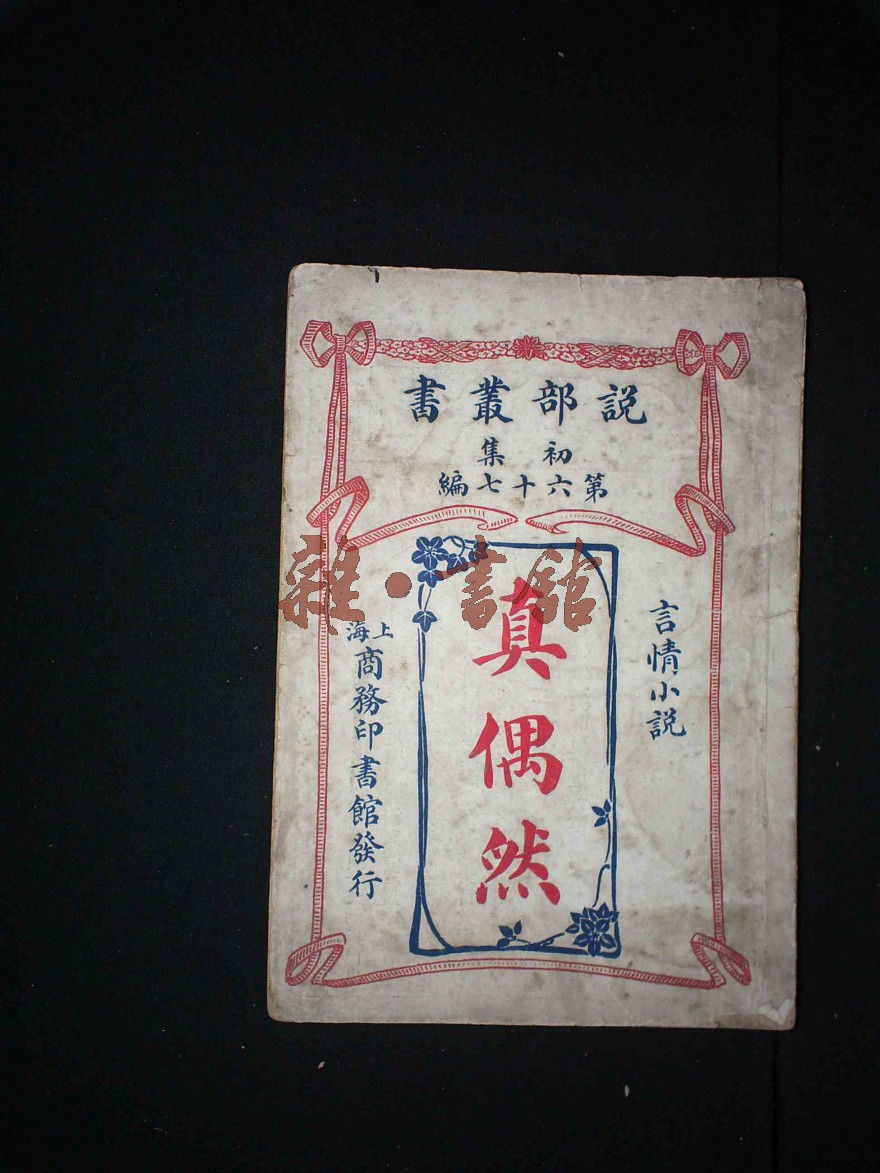 説部叢書
初集
第六十七編
言情小説
真偶然
上海
商務印書館發行
雜·書館